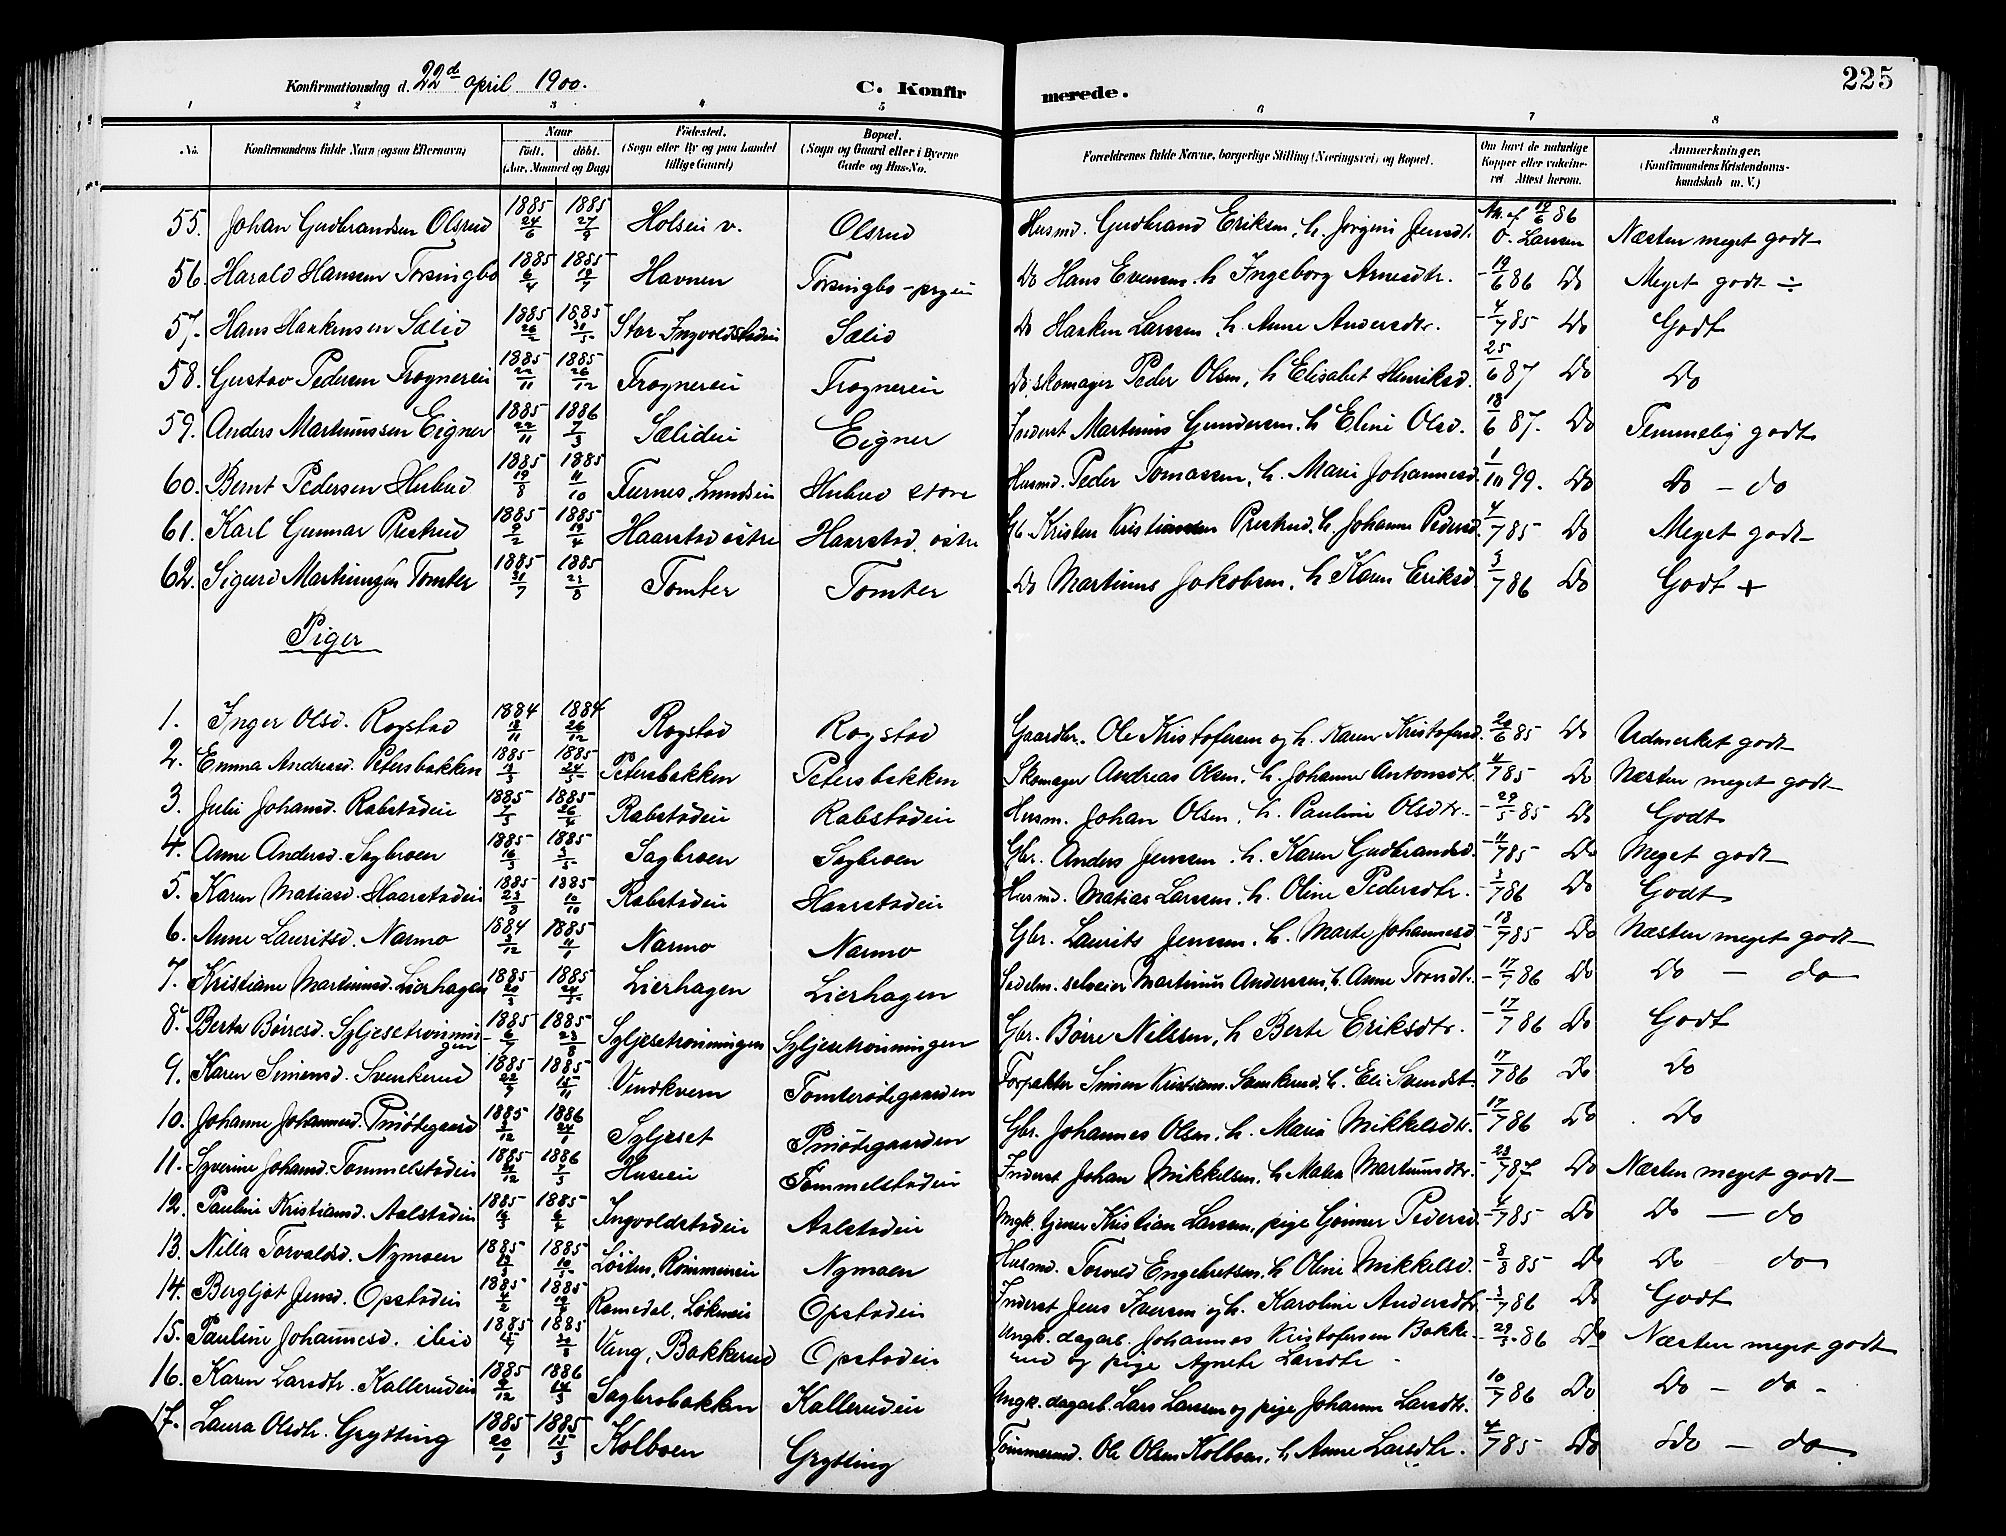 225
Konfirmationsdag d. 22d april 1900.
C. Konfirmerede.
1 2 3 4 5 6 7 8
No. Konfirmandens fulde Navn (ogsaa Efternavn) Naar født. døbt. (Aar, Maaned og Dag) Fødested. (Sogn eller By og paa Landet tillige Gaard) Bopæl. (Sogn og Gaard eller i Byerne Gade og Hus-No. Forældrenes fulde Navne, borgerlige Stilling (Næringsvei) og Bopæl. Om havt de naturlige Kopper eller vakcineret. Attest herom. Anmerkninger, (Konfirmandens Kristendomskundskab m. V.)
55. Johan Gudbrandsen Olsrud 1885 24/6 1885 27/9 Holsei v. Olsrud Husmd. Gudbrand Eriksen, h. Jørgine Jensdt. Att. af 19/6 86 O. Larsen Næsten meget godt
56. Harald Hansen Torsingbo 1885 6/4 1885 19/7 Havnen Torsingbo Do Hans Evensen, h. Ingeborg Arnesdtr. 19/6 86 Do Meget godt ÷
57. Hans Haakensen Sælid 1885 26/2 1885 31/5 Stor Ingvoldstadei Sælid Do Haaken Larsen, h. Anne Andersdtr. 4/7 85 Do Godt
58. Gustav Pedersen Frognerei 1885 22/11 1885 26/12 Frognerei Frognerei Do, skomager Peder Olsen, h. Elisabet Henriksd. 25/6 87 Do Do
59. Anders Martinussen Eigner 1885 22/11 1886 7/3 Sælidei Eigner Inderst Martinus Gundersen, h. Eline Olsd. 18/6 87. Do Temmelig godt
60. Bernt Pedersen Hubud 1885 19/8 1885 11/10 Furnes, Lundsei Hubud store Husmd. Peder Tomassen, h. Marie Johannesd. 1/10 99. Do Do - do
61. Karl Gunnar Prestrud 1885 9/2 1885 19/4 Haarstad østre Haarstad østre Gb. Kristen Kristiansen Prestrud, h. Johanne Pedersd. 4/7 85 Do Meget godt
62. Sigurd Martinusen Tomter 1885 31/7 1885 23/8 Tomter Tomter Do Martinus Jakobsen, h. Karen Eriksd. 3/7 86 Do Godt +
Piger
1. Inger Olsd. Rogstad 1884 13/11 1884 26/12 Rogstad Rogstad Gaardbr. Ole Kristofersen og h. Karen Kristofersd. 20/6 85 Do Udmerket godt
2. Emma Andreasd. Petersbakken 1885 13/3 1885 24/5 Petersbakken Petersbakken Skomager Andreas Olsen, h. Johanne Antonsdt. 4/7 85 Do Næsten meget godt
3. Julie Johansd. Rabstadei 1885 7/3 1885 26/4 Rabstadei Rabstadei Husm. Johan Olsen, h. Pauline Olsdtr. 29/5 85 Do Godt
4. Anne Andersd. Sagbroen 1885 16/3 1885 3/5 Sagbroen Sagbroen Gbr. Anders Jensen, h. Karen Gudbrandsd. 11/7 85 Do Meget godt
5. Karen Matiasd. Haarstadei 1885 23/8 1885 10/10 Rabstadei Haarstadei Husmd. Matias Larsen, h. Oline Pedersdtr. 3/7 86 Do Godt
6. Anne Lauritsd. Narmo 1884 3/12 1885 11/1 Narmo Narmo Gbr. Laurits Jensen, h. Marte Johannesd. 18/7 85 Do Næsten meget godt
7. Kristiane Martinusd. Lierhagen 1885 20/3 1885 24/5 Lierhagen Lierhagen Sadelm. selveier Martinus Anderssen, h. Anne Trondt. 17/7 86 Do Do - do
8. Berte Børresd. Syljesetrønningen 1885 6/7 1885 23/8 Syljesetrønningen Syljesetrønningen Gbr. Børre Nilsen, h. Berte Eriksdtr. 17/7 86 Do Godt
9. Karen Simensd. Svenkerud 1885 22/9 1885 15/11 Vindkvern Tomterødegaarden Forpakter Simen Kristians. Svenkerud, h. Eli Svendst. 17/7 86 Do Do
10. Johanne Johannesd. Pmødegaard 1885 3/12 1886 24/1 Syljeset Pmødegaarden Gbr. Johannes Olsen, h. Marie Mikkelsdt. 17/7 86 Do Do
11. Syverine Johansd. Tommelstadei 1885 31/12 1886 2/5 Huseei Tommelstadei Inderst Johan Mikkelsen, h. Matea Martinusdtr. 23/7 87 Do Næsten meget godt
12. Pauline Kristiansd. Aalstadei 1885 16/3 1885 6/4 Ingvoldstadei Aalstadei Ungk. tjener Kristian Larsen, pige Gunner Pedersd. 4/7 85 Do Do - do
13. Nilla Torvaldsd. Nymoen 1885 13/3 1885 10/5 Løiten, Rømmenei Nymoen Husmd. Torvald Engebretsen, h. Oline Mikkelsd. 8/8 85 Do Do do
14. Bergljot Jensd. Opstadei 1885 4/2 1885 19/4 Romedal, Løkenei Opstadei Inderst Jens Iversen og h. Karoline Andersdtr. 3/7 86 Do Godt
15. Pauline Johannesd. ibid 1885 15/4 1885 30/8 Vang, Bakkerud Opstadei Ungk. dagarb. Johannes Kristofersen Bakkerud og pige Agnete Larsdtr. 29/5 86 Do Næsten meget godt
16. Karen Larsdtr. Kallerudei 1885 9/12 1886 14/3 Sagbrobakken Kallerudei Ungk. dagarb. Lars Larsen og pige Johanne Larsdtr. 10/7 86 Do Do - do -
17. Laura Olsdtr. Grytting 1885 20/1 1885 15/3 Kolboen Grytting Tømmermd. Ole Olsen Kolboen, h. Anne Larsdtr. 4/7 85 Do Do - do